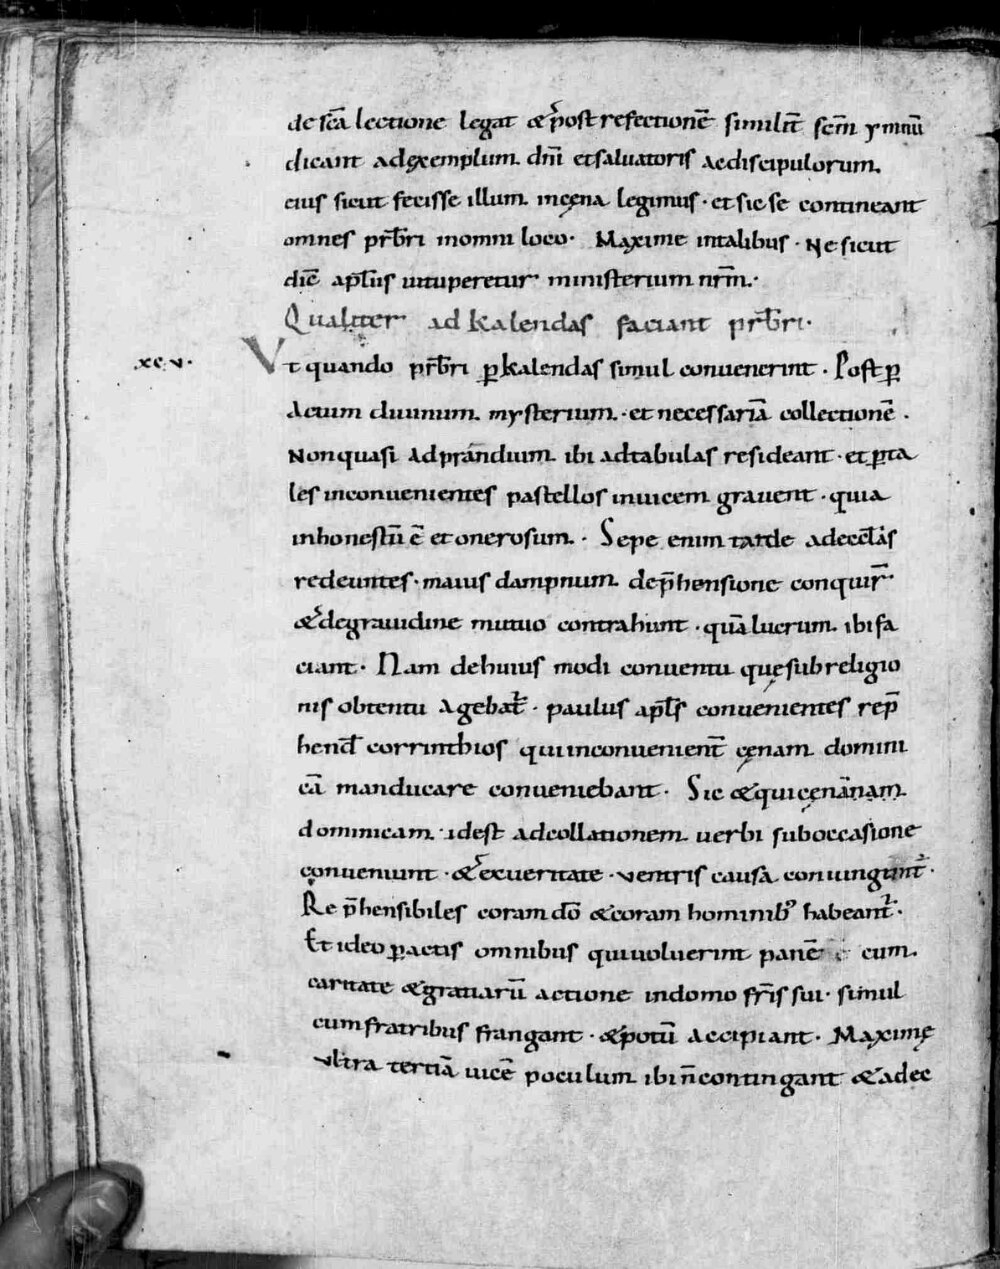 de sc̄a lectione legat̄ & post refectionē similit̄ sc̄m ymnū
dicant ad exemplum dn̄i et saluatoris ac discipulorum
eius sicut fecisse illum in cęna legimus · et sic se contineant
omnes prb̄ri in omni loco · Maxime in talibus · Ne sicut
dic̄ apl̄us uituperetur ministerium nr̄m ·
Qualiter ad Kalendas faciant prb̄ri ·
xcv · Vt quando prb̄ri ꝑ kalendas simul conuenerint · Post ꝑ
actum diuinum mysterium · et necessariā collectionē ·
Non quasi ad prandium ibi ad tabulas resideant · et ꝑ ta
les inconuenientes pastellos inuicem grauent · quia
inhonestū ē et onerosum · Sepe enim tarde ad eccl̄as
redeuntes · maius dampnum de p̄hensione conquir̄
& de grauidine mutuo contrahunt · quā lucrum ibi fa
ciant · Nam de huius modi conuentu quę sub religio
nis obtentu agebat̄ · paulus apl̄s conuenientes rep̄
hend̄ corrinthios qui inconuenient̄ cęnam domini
cā manducare conueniebant · Sic & qui cęnam
dominicam · id est ad collationem uerbi sub occasione
conueniunt · & ex ueritate · uentris causa coniungunt̄ ·
Re p̄hensibiles coram dō & coram hominib; habeant̄ ·
Et ideo ꝑactis omnibus qui uoluerint panē cum
caritate & gratiarū actione in domo fr̄is sui · simul
cum fratribus frangant · & potū accipiant · Maximę
ultra tertiā uicē poculum ibi n̄ contingant & ad ec